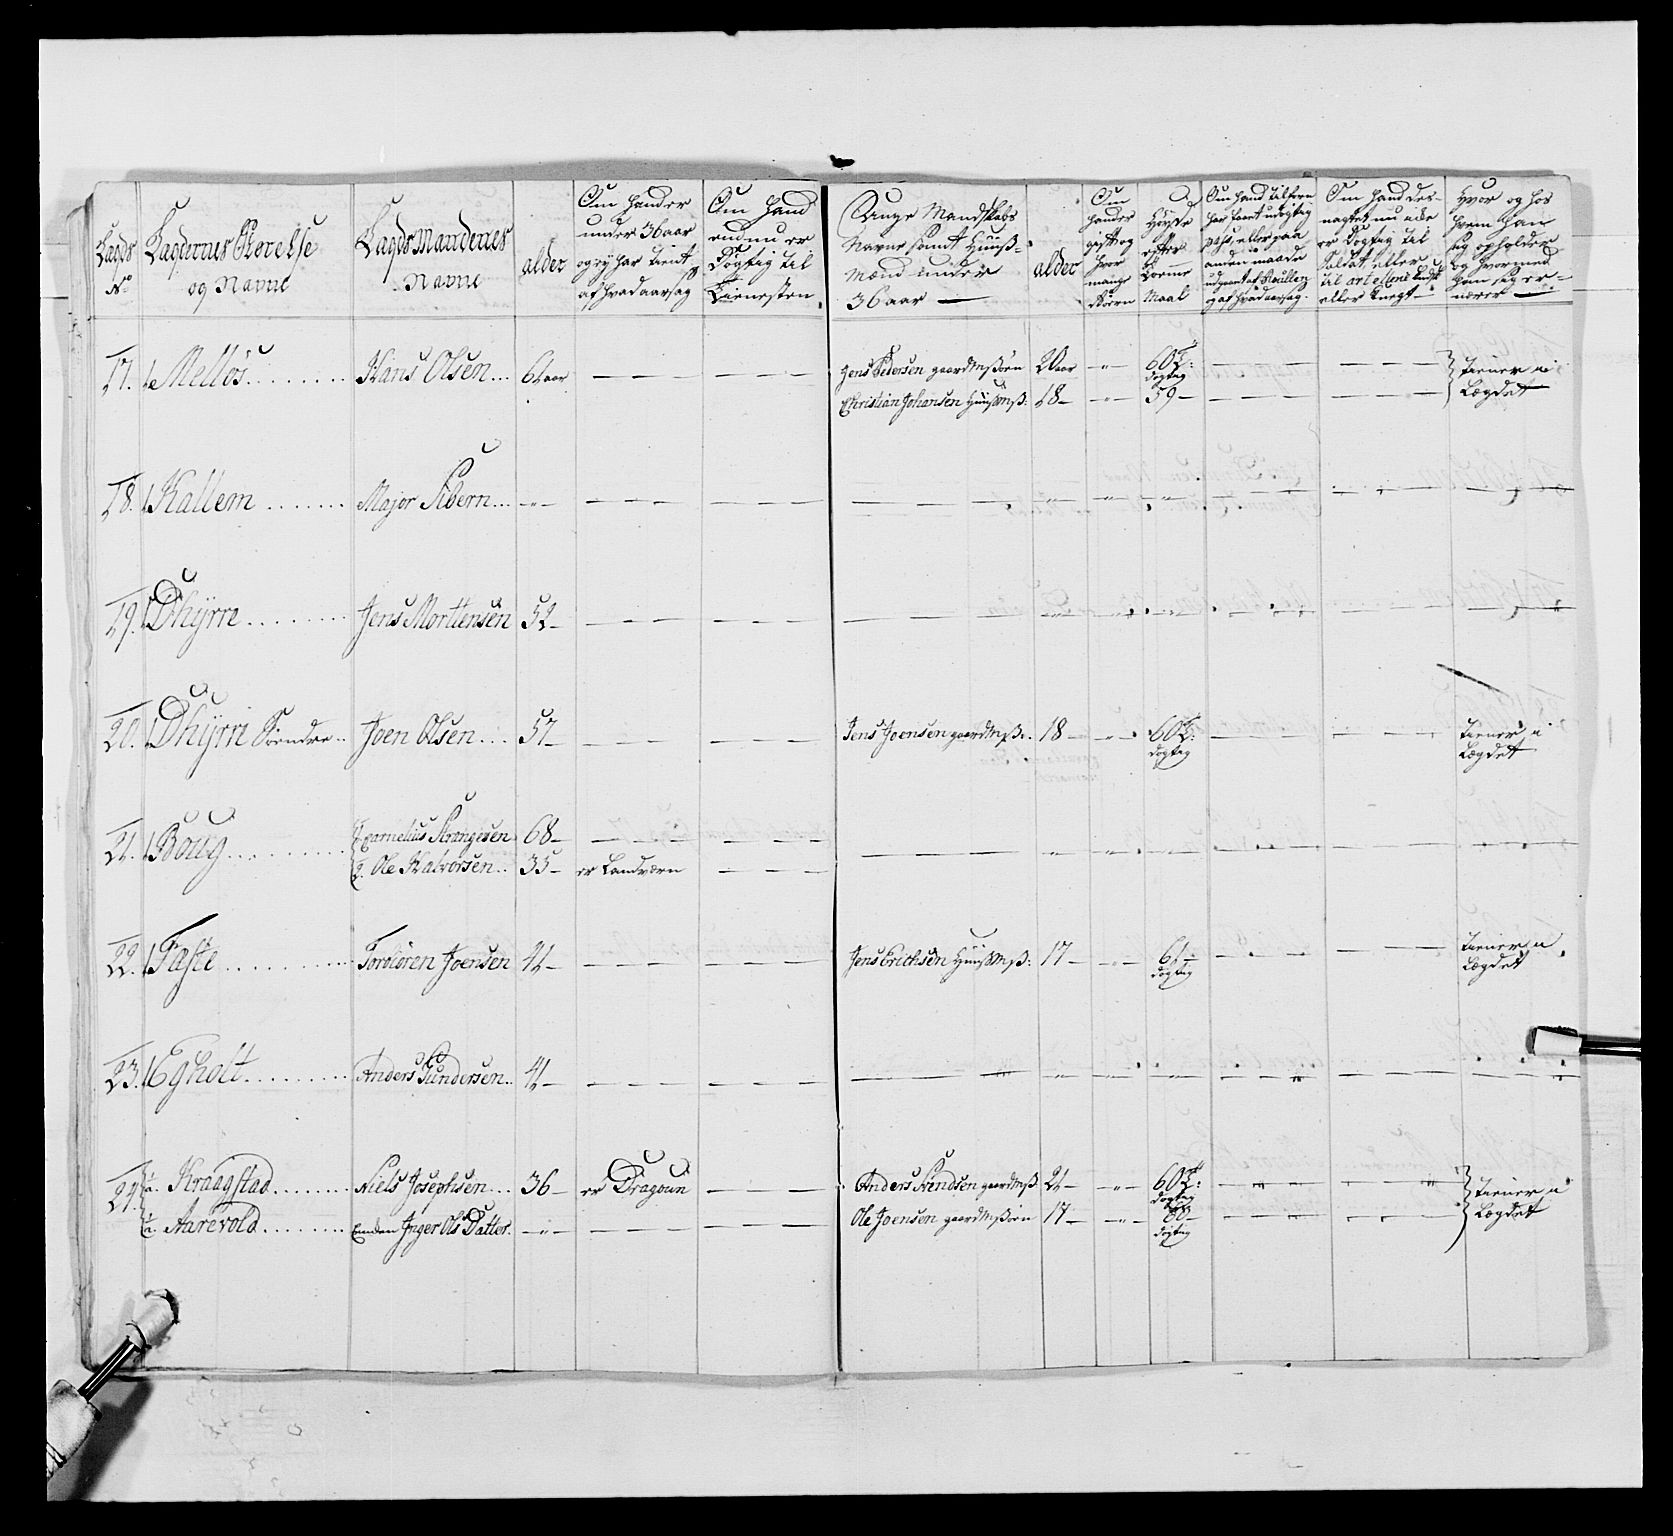 Lægds No
Lægdernes Størelse og Navne
Lægds Mændenes Navne
alder
Om hander under 36 aar og ey har tient, af hvad aarsag
Om hand endnu er Dögtig til Tienesten
Unge Mandskabs Navne, samt Huuß-Mænd under 36 aar
alder
Om hander gift og hvor mange Börn
Höyde efter Tomme Maal
Om hand tilforn har faaet udgtig pas, eller paa anden maade udgaaet af Rullen og af hvad aarsag
Om hand des- nagtet nu ikke er Dögtig til Soldat eller til artellerie Kudsk eller Knegt
Hvor og hos hvem han sig opholder og hvormed han sig er- nærer
17. 1 Mellös Hans Olsen 61 aar Jens Pedersen gaardMßön 20 aar 60½: dögtig Tiener i Lægdet
Christian Johansen HuußMß: 18 59
18. 1 Kallem Major Sibern
19. 1 Dhÿrre Jens Mortensen 52
20. 1 Dhÿrre Söendre Joen Olsen 57 Jens Joensen gaardMß. 18 60½: dögtig Tiener i Lægdet
21. 1 Boug 1 Carnelius Strangesen 68
2. Ole Halvorsen 35 er Landværn
22. 1 Taste Torbiören Joensen 41 Jens Erichsen HuußMß: 17 61 dögtig Tiener i Lægdet
23. 1 Egholt Anders Gundersen 41
24. ½. Kraagstad Niels Josephsen 36 er Dragoun Anders Svendsen gaardMß 21 60½: dögtig Tiener i Lægdet
½. Aarevold Enken Inger Ols Datter Ole Joensen gaardMßön 17 60 dögtig